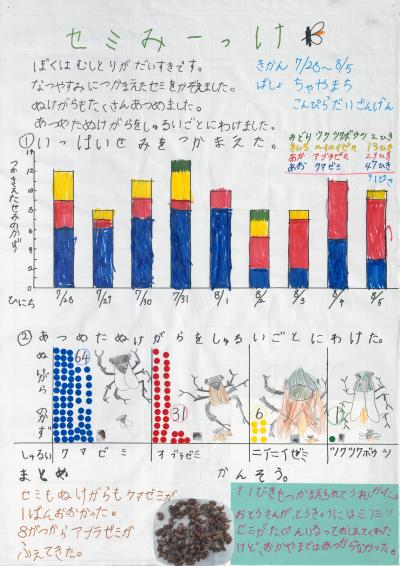 セミみーっけ
ぼくは むしとりが だいすきです。
なつやすみに つかまえたセミを かぞえました。
ぬけがらも たくさん あつめました。
あつめた ぬけがらを しゅるいごとに わけました。
きかん 7/28〜8/5
ばしょ ちゃやまち
こんぴらだいさんげん
① いっぱい せみを つかまえた。
みどり ツクツクボウシ 2ひき
きいろ ニイニイゼミ 13びき
あか アブラゼミ 29ひき
あお クマゼミ 47ひき
91ぴき
つかまえたせみのかず
14
12
10
8
6
4
2
0
ひにち 7/28 7/29 7/30 7/31 8/1 8/2 8/3 8/4 8/5
② あつめた ぬけがらを しゅるいごとに わけた。
ぬけがらのかず
64 31 6 1
しゅるい クマゼミ アブラゼミ ニイニイゼミ ツクツクボウシ
まとめ
セミも ぬけがらも クマゼミが
1ばん おおかった。
8がつから アブラゼミが
ふえてきた。
かんそう。
91ぴきもつかまえられてうれしかった。
おとうさんが、とうきょうにはミンミン
ゼミがたくさんいるっておしえてくれた
けど、おかやまではみつからなかった。